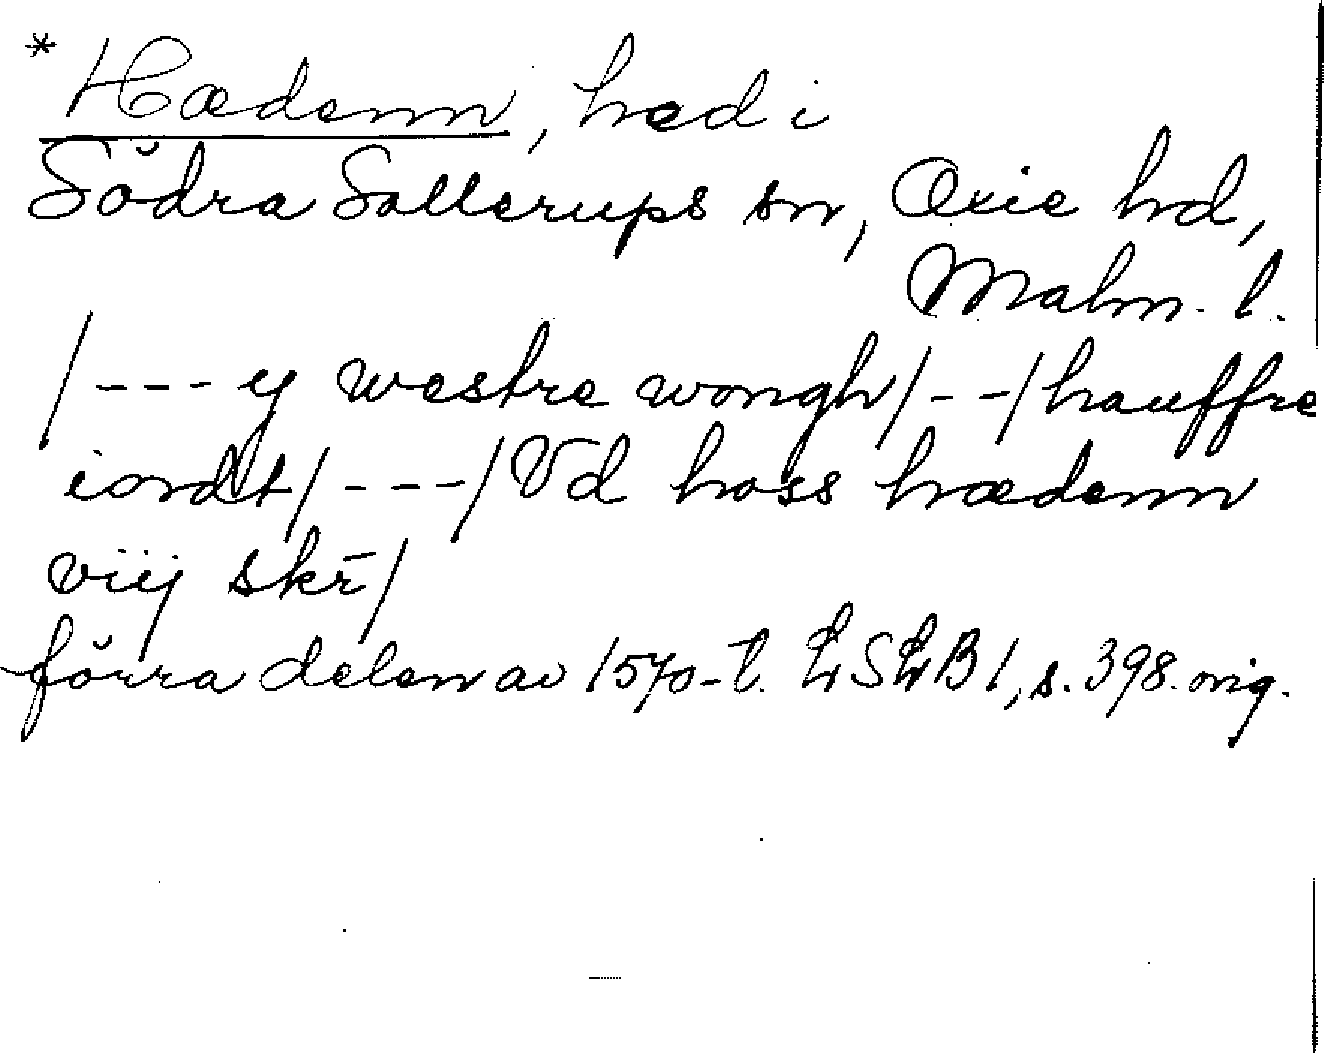 * Hædenn, hed i
Södra Sallerups sn, Oxie hd,
Malm. l.
/--- y westre wongh/--/hauffre
iordt/---/Vd hoss hædenn
viij skr̄/
förra delen av 1570-t. LSLB 1, s. 398. orig.